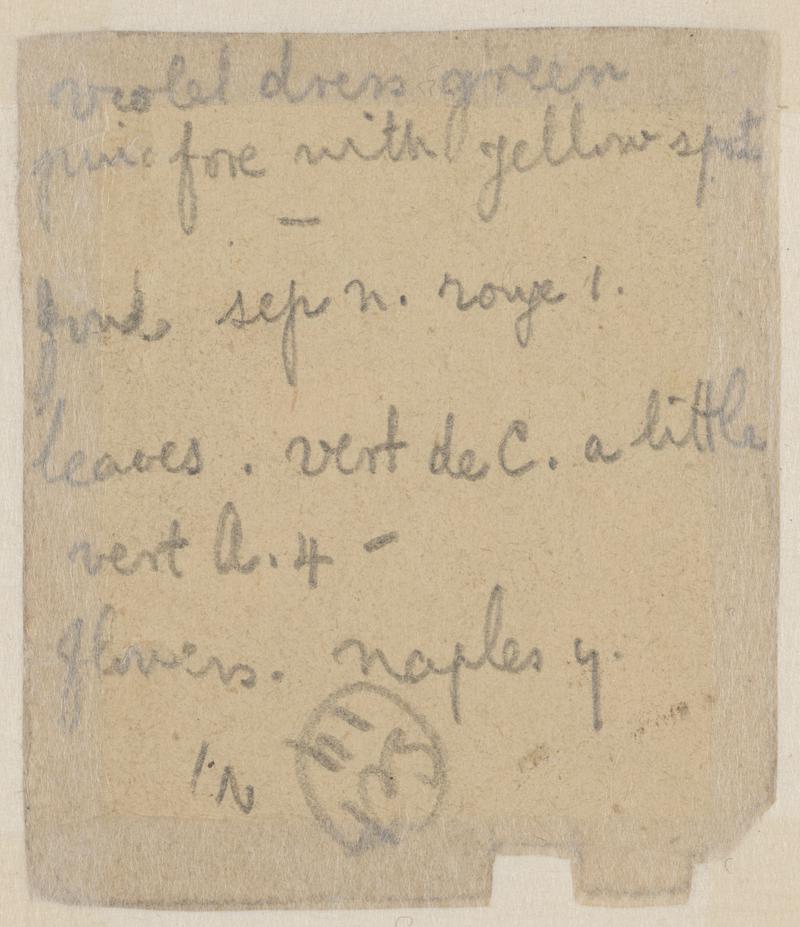 violet dress green
pinafore with yellow spot
—
fond sep n. rouge 1.
leaves . vert de C. a little
vert A. 4 -
flowers. naples y.